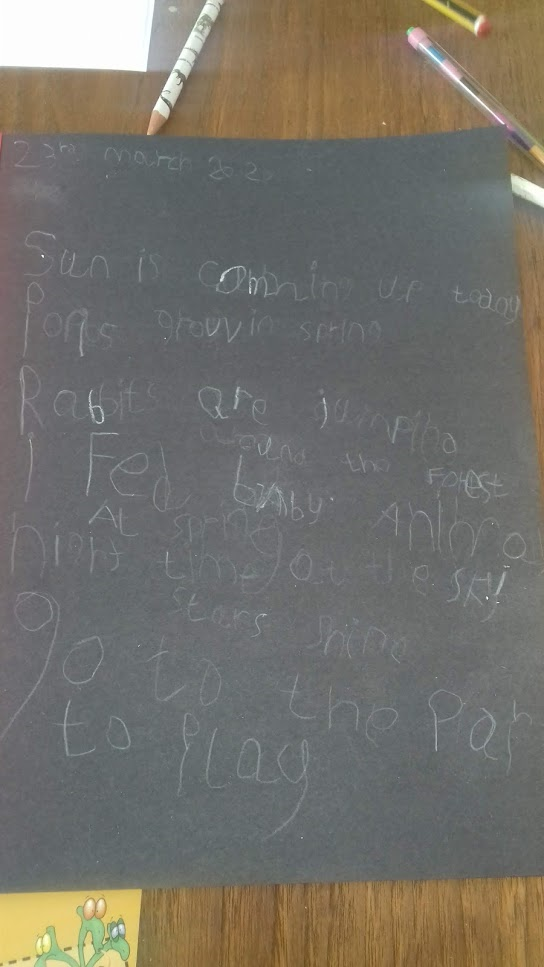 23rd march 2020
Sun is comming up today
Pops grow in spring
Rabbits are jumping
around the Forest
I Fed baby Anima
At spring
night time at the sky
stars shine
go to the Par
to play